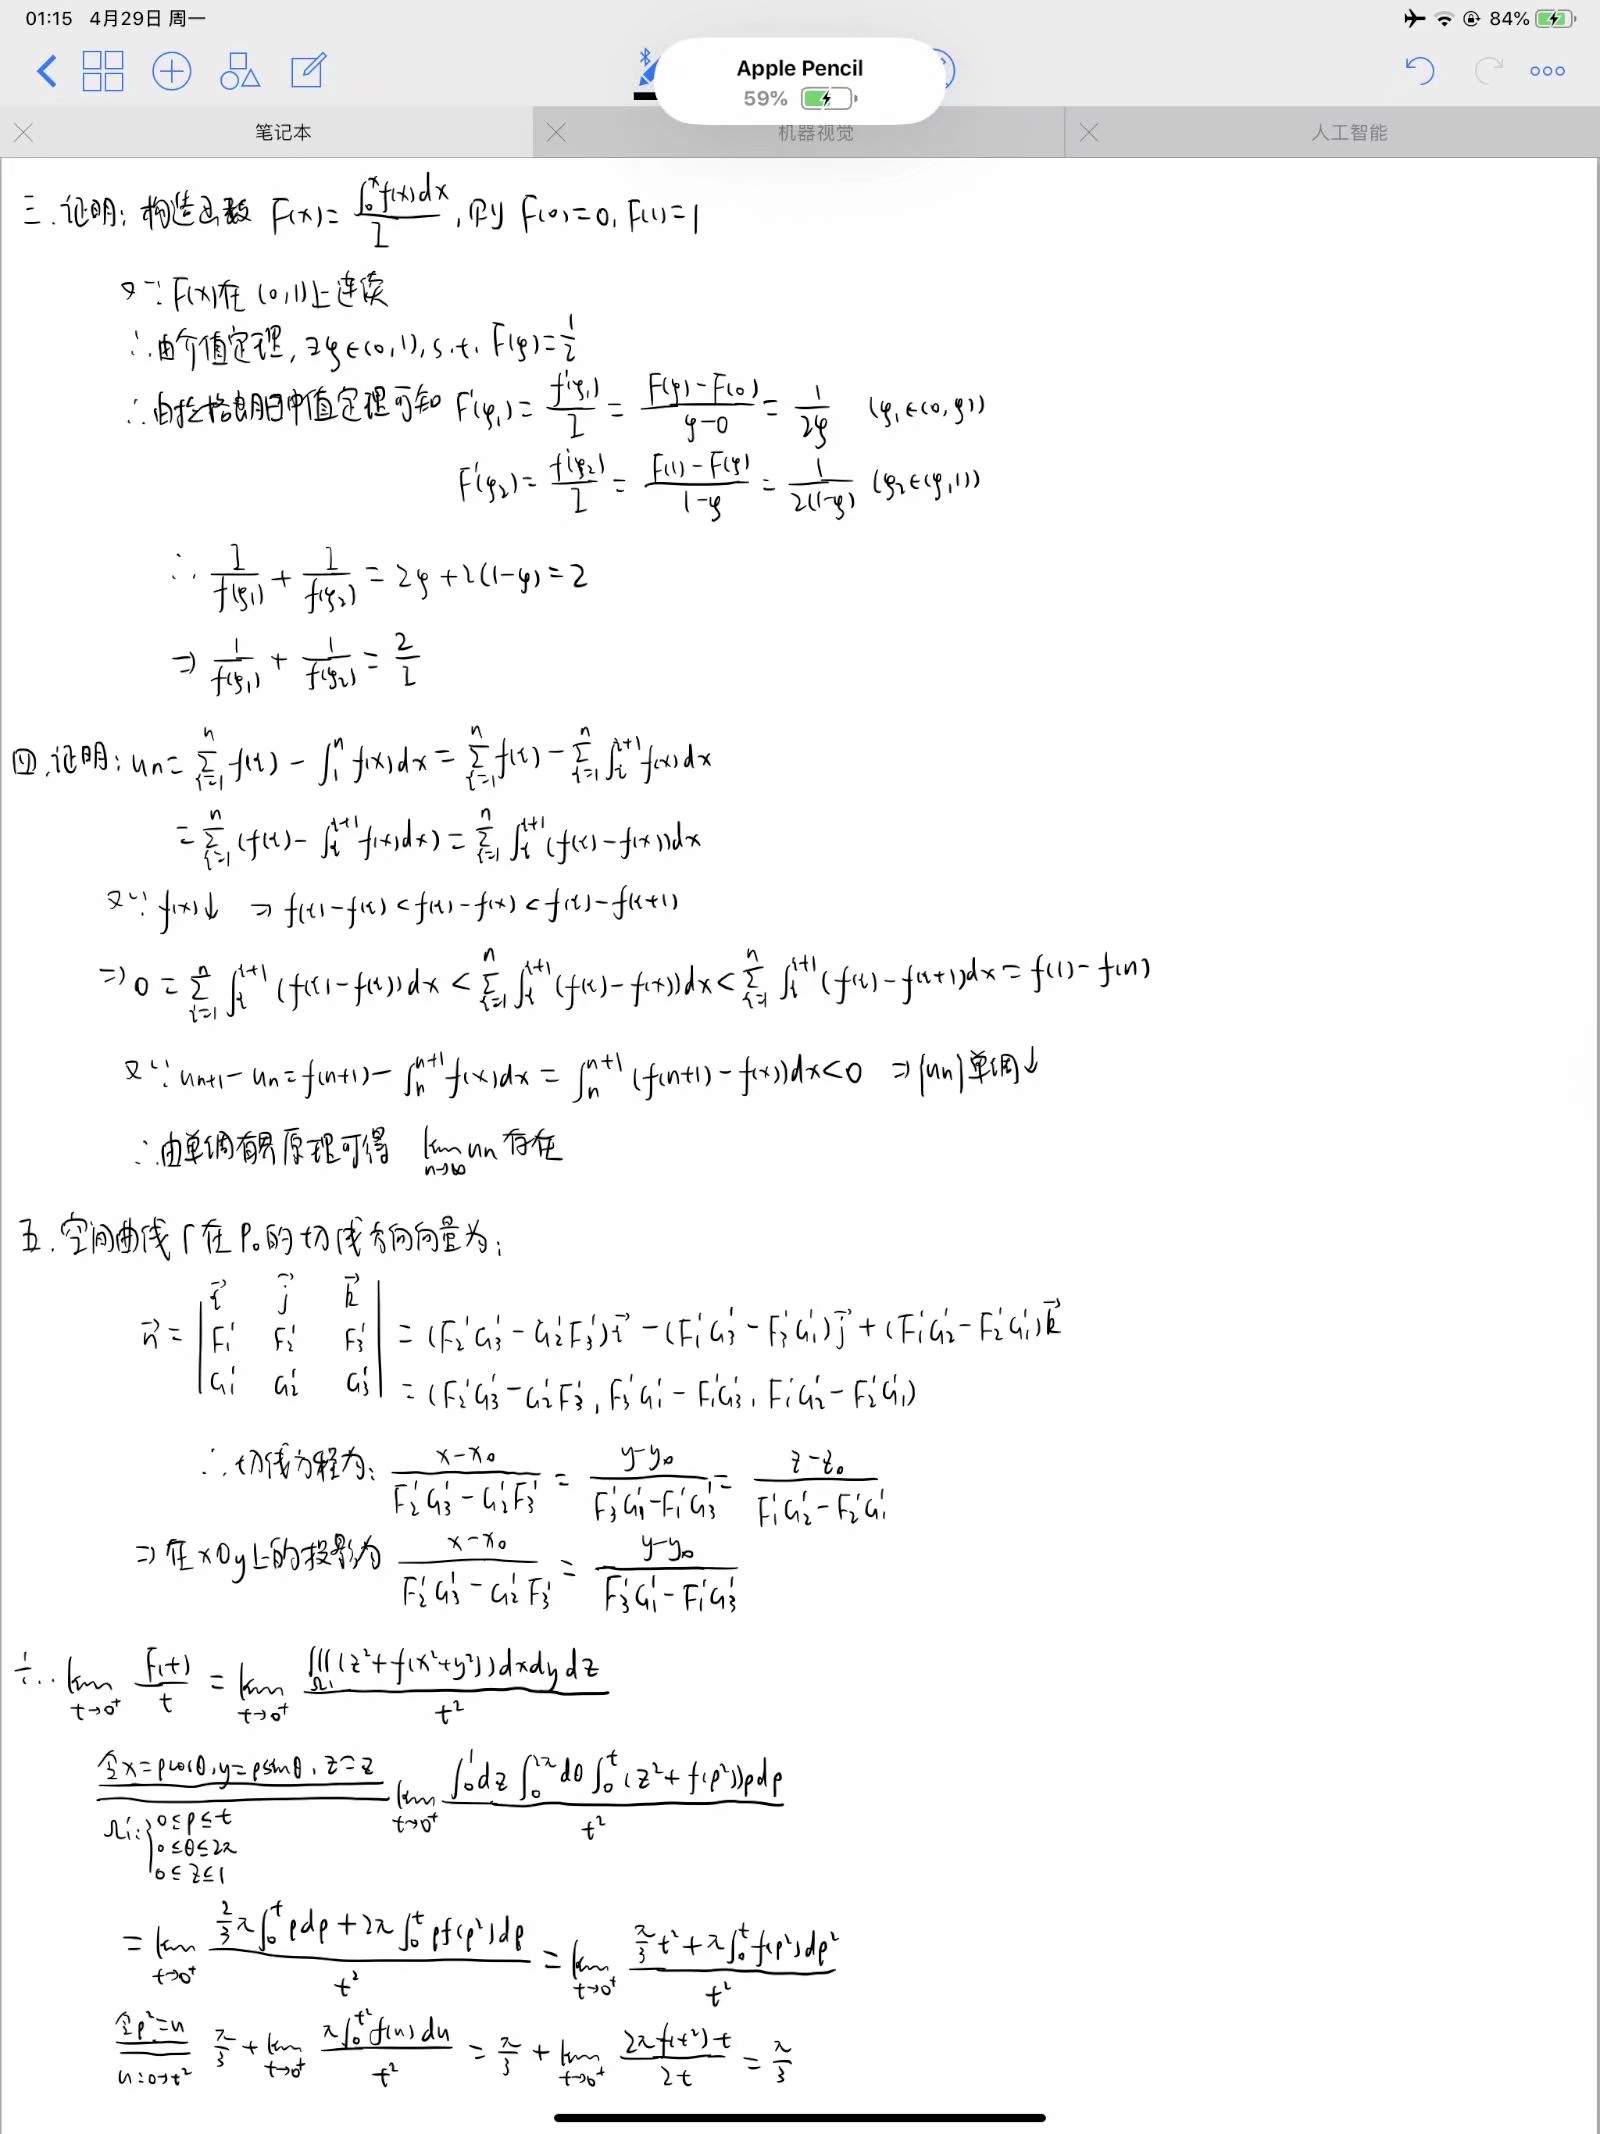 01:15 4月29日 周一
84%
Apple Pencil
59%
笔记本
机器视觉
人工智能
三.证明: 构造函数 F(x)=∫₀ˣf(x)dx/I, 则 F(0)=0, F(1)=1
又∵F(x)在(0,1)上连续
∴由介值定理,∃ξ∈(0,1), s.t. F(ξ)=1/2
∴由拉格朗日中值定理可知 F'(ξ₁)=f(ξ₁)/I=(F(ξ)-F(0))/(ξ-0)=1/2ξ (ξ₁∈(0,ξ))
F'(ξ₂)=f(ξ₂)/I=(F(1)-F(ξ))/(1-ξ)=1/2(1-ξ) (ξ₂∈(ξ,1))
∴ I/f(ξ₁)+I/f(ξ₂)=2ξ+2(1-ξ)=2
⇒ 1/f(ξ₁)+1/f(ξ₂)=2/I
四.证明: uₙ=∑ᵢ₌₁ⁿf(i)-∫₁ⁿf(x)dx=∑ᵢ₌₁ⁿf(i)-∑ᵢ₌₁ⁿ∫ᵢⁱ⁺¹f(x)dx
=∑ᵢ₌₁ⁿ(f(i)-∫ᵢⁱ⁺¹f(x)dx)=∑ᵢ₌₁ⁿ∫ᵢⁱ⁺¹(f(i)-f(x))dx
又∵f(x)↓ ⇒ f(i)-f(i)<f(i)-f(x)<f(i)-f(i+1)
⇒0=∑ᵢ₌₁ⁿ∫ᵢⁱ⁺¹(f(i)-f(i))dx<∑ᵢ₌₁ⁿ∫ᵢⁱ⁺¹(f(i)-f(x))dx<∑ᵢ₌₁ⁿ∫ᵢⁱ⁺¹(f(i)-f(i+1)dx=f(1)-f(n)
又∵uₙ₊₁-uₙ=f(n+1)-∫ₙⁿ⁺¹f(x)dx=∫ₙⁿ⁺¹(f(n+1)-f(x))dx<0 ⇒{uₙ}单调↓
∴由单调有界原理可得 lim n→∞ uₙ存在
五.空间曲线Γ在P₀的切线方向向量为:
n⃗=|i⃗ j⃗ k⃗; F₁' F₂' F₃'; G₁' G₂' G₃'|=(F₂'G₃'-G₂'F₃')i⃗-(F₁'G₃'-F₃'G₁')j⃗+(F₁'G₂'-F₂'G₁')k⃗
=(F₂'G₃'-G₂'F₃', F₃'G₁'-F₁'G₃', F₁'G₂'-F₂'G₁')
∴切线方程为: (x-x₀)/(F₂'G₃'-G₂'F₃')=(y-y₀)/(F₃'G₁'-F₁'G₃')=(z-z₀)/(F₁'G₂'-F₂'G₁')
⇒在xOy上的投影为 (x-x₀)/(F₂'G₃'-G₂'F₃')=(y-y₀)/(F₃'G₁'-F₁'G₃')
六. lim t→0⁺ F(t)/t=lim t→0⁺ ∭Ω₁(z²+f(x²+y²))dxdydz/t²
令x=ρcosθ,y=ρsinθ,z=z lim t→0⁺ ∫₀¹dz∫₀²πdθ∫₀ᵗ(z²+f(ρ²))ρdρ/t²
Ω₁':{0≤ρ≤t
0≤θ≤2π
0≤z≤1
=lim t→0⁺ (2/3π∫₀ᵗρdρ+2π∫₀ᵗρf(ρ²)dρ)/t²=lim t→0⁺ (π/3t²+π∫₀ᵗf(ρ²)dρ²)/t²
令ρ²=u π/3+lim t→0⁺ π∫₀^t²f(u)du/t²=π/3+lim t→0⁺ 2πf(t²)·t/2t=π/3
u:0→t²